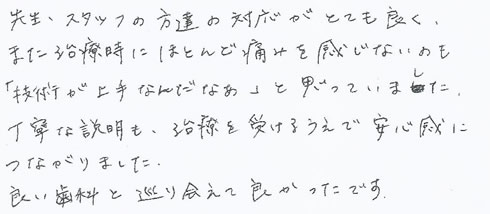 先生、スタッフの方達の対応がとても良く、
また治療時にほとんど痛みを感じないのも
「技術が上手なんだなあ」と思っていました。
丁寧な説明も、治療を受けるうえで安心感に
つながりました。
良い歯科と巡り会えて良かったです。